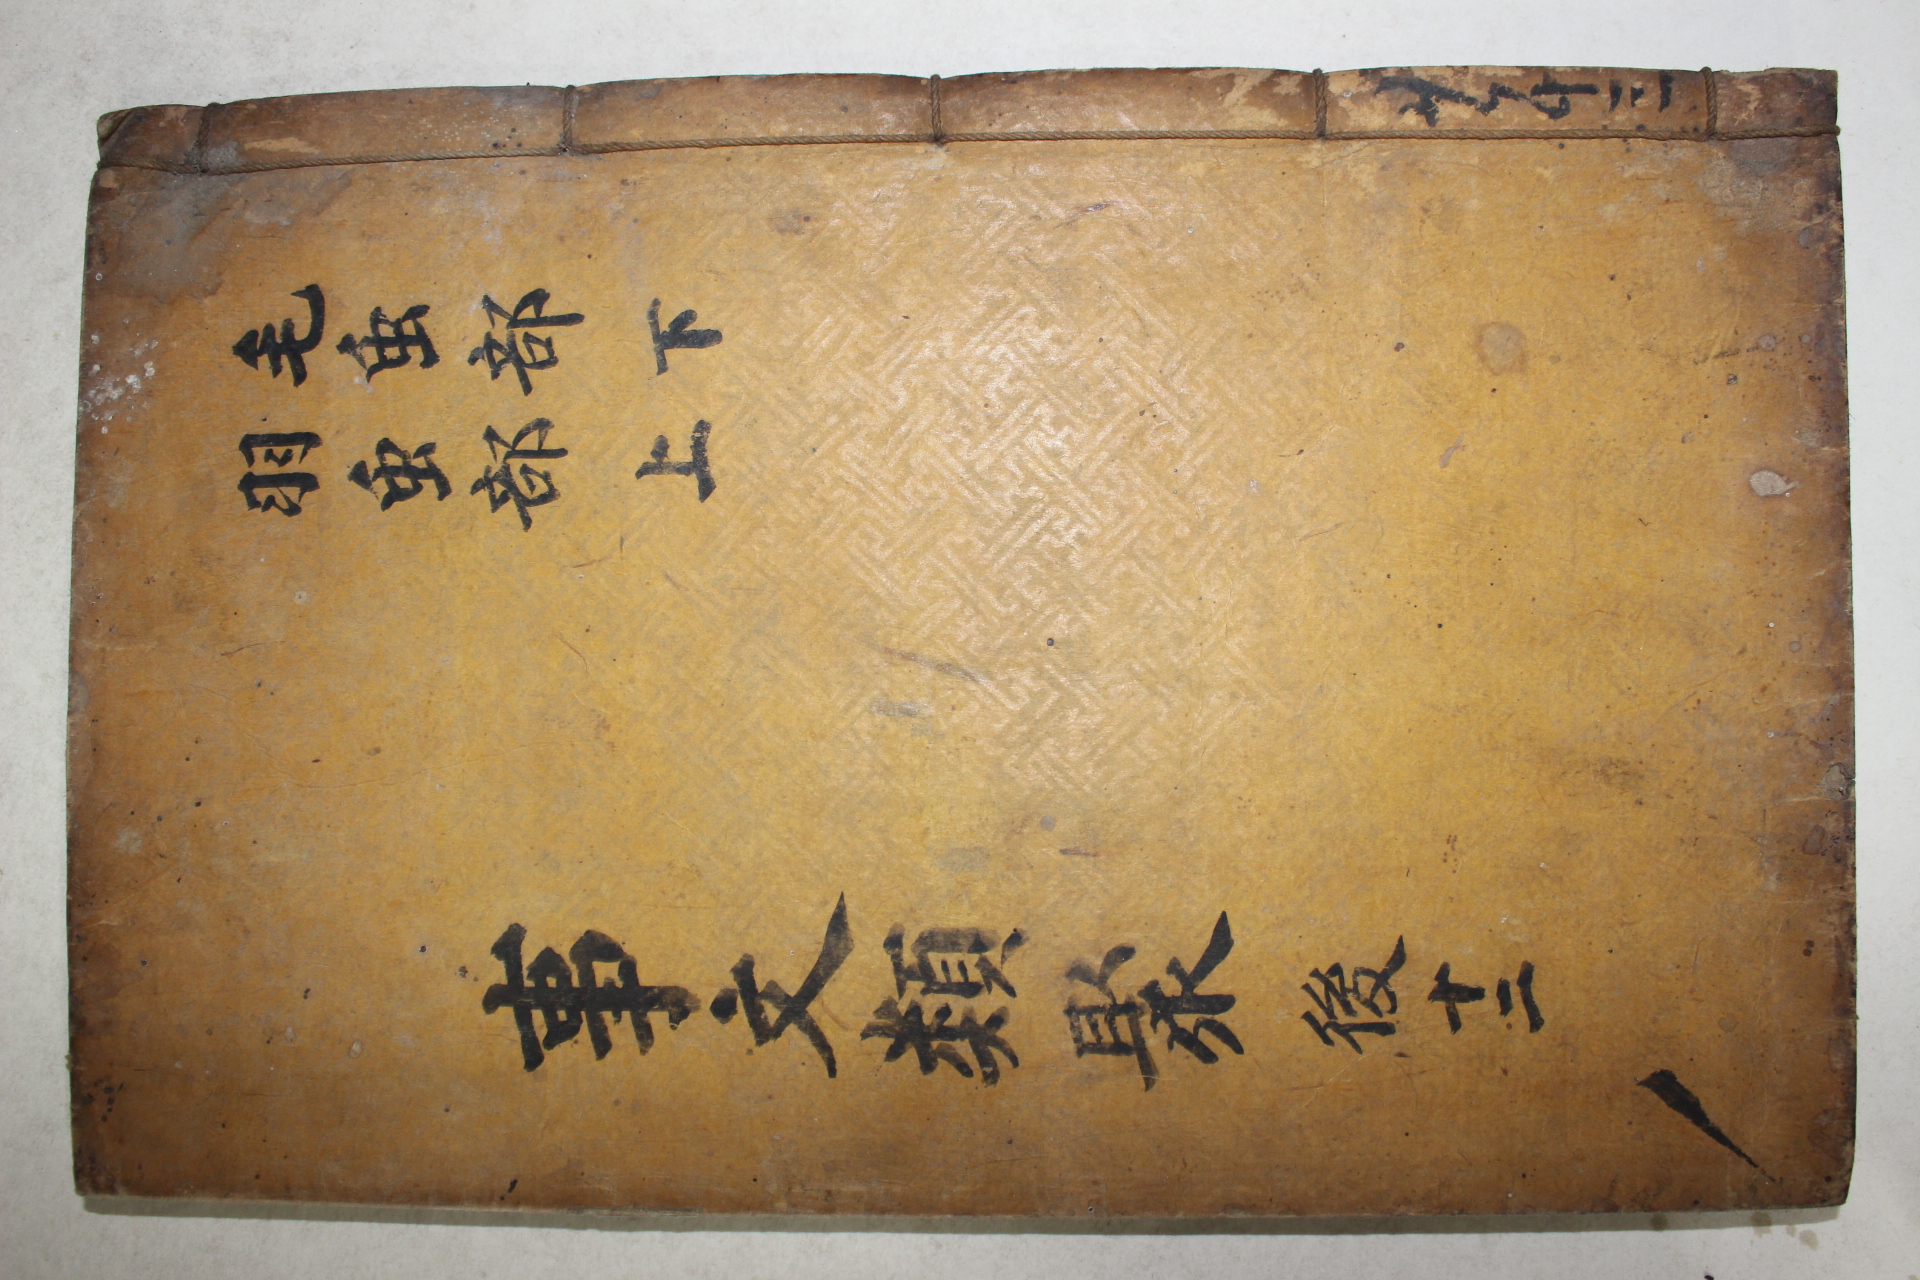 毛虫部下
羽虫部上
事文類聚 後十二